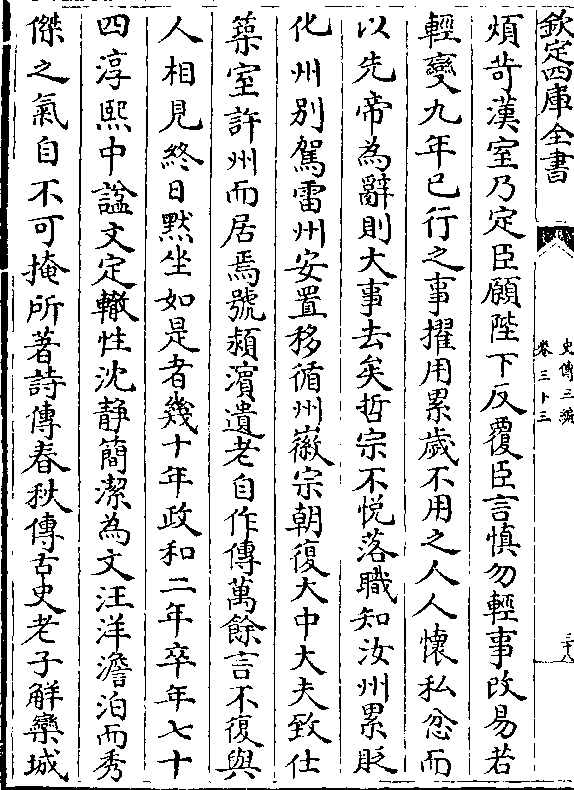 欽定四庫全書
史傳三編
卷三十三
三十八
煩苛漢室乃定臣願陛下反覆臣言慎勿輕事改易若
輕變九年已行之事擢用累歲不用之人人懷私忿而
以先帝為辭則大事去矣哲宗不悅落職知汝州累貶
化州別駕雷州安置移循州徽宗朝復大中大夫致仕
築室許州而居焉號潁濵遺老自作傳萬餘言不復與
人相見終日默坐如是者幾十年政和二年卒年七十
四淳熙中諡文定轍性沈靜簡潔為文汪洋澹泊而秀
傑之氣自不可掩所著詩傳春秋傳古史老子解欒城